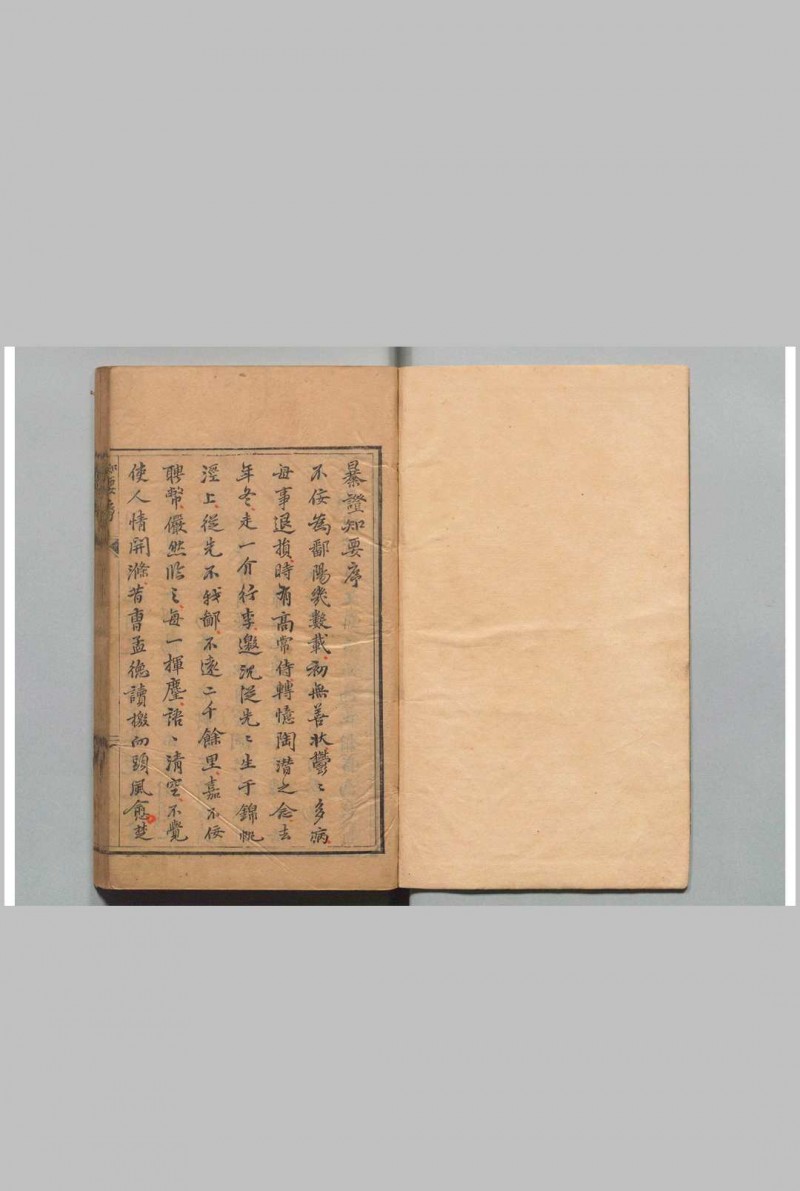 暴證知要序
不佞為鄱陽幾數載初無善狀鬱〻多病
毎事退損時有高常侍轉憶陶潜之念去
年冬走一介行李邀沈從先〻生于錦帆
涇上從先不我鄙不遠二千餘里嘉不佞
聘幣儼然臨之毎一揮麈語〻清空不覺
使人情開滌昔曹孟德讀檄而頭風愈楚
知要序